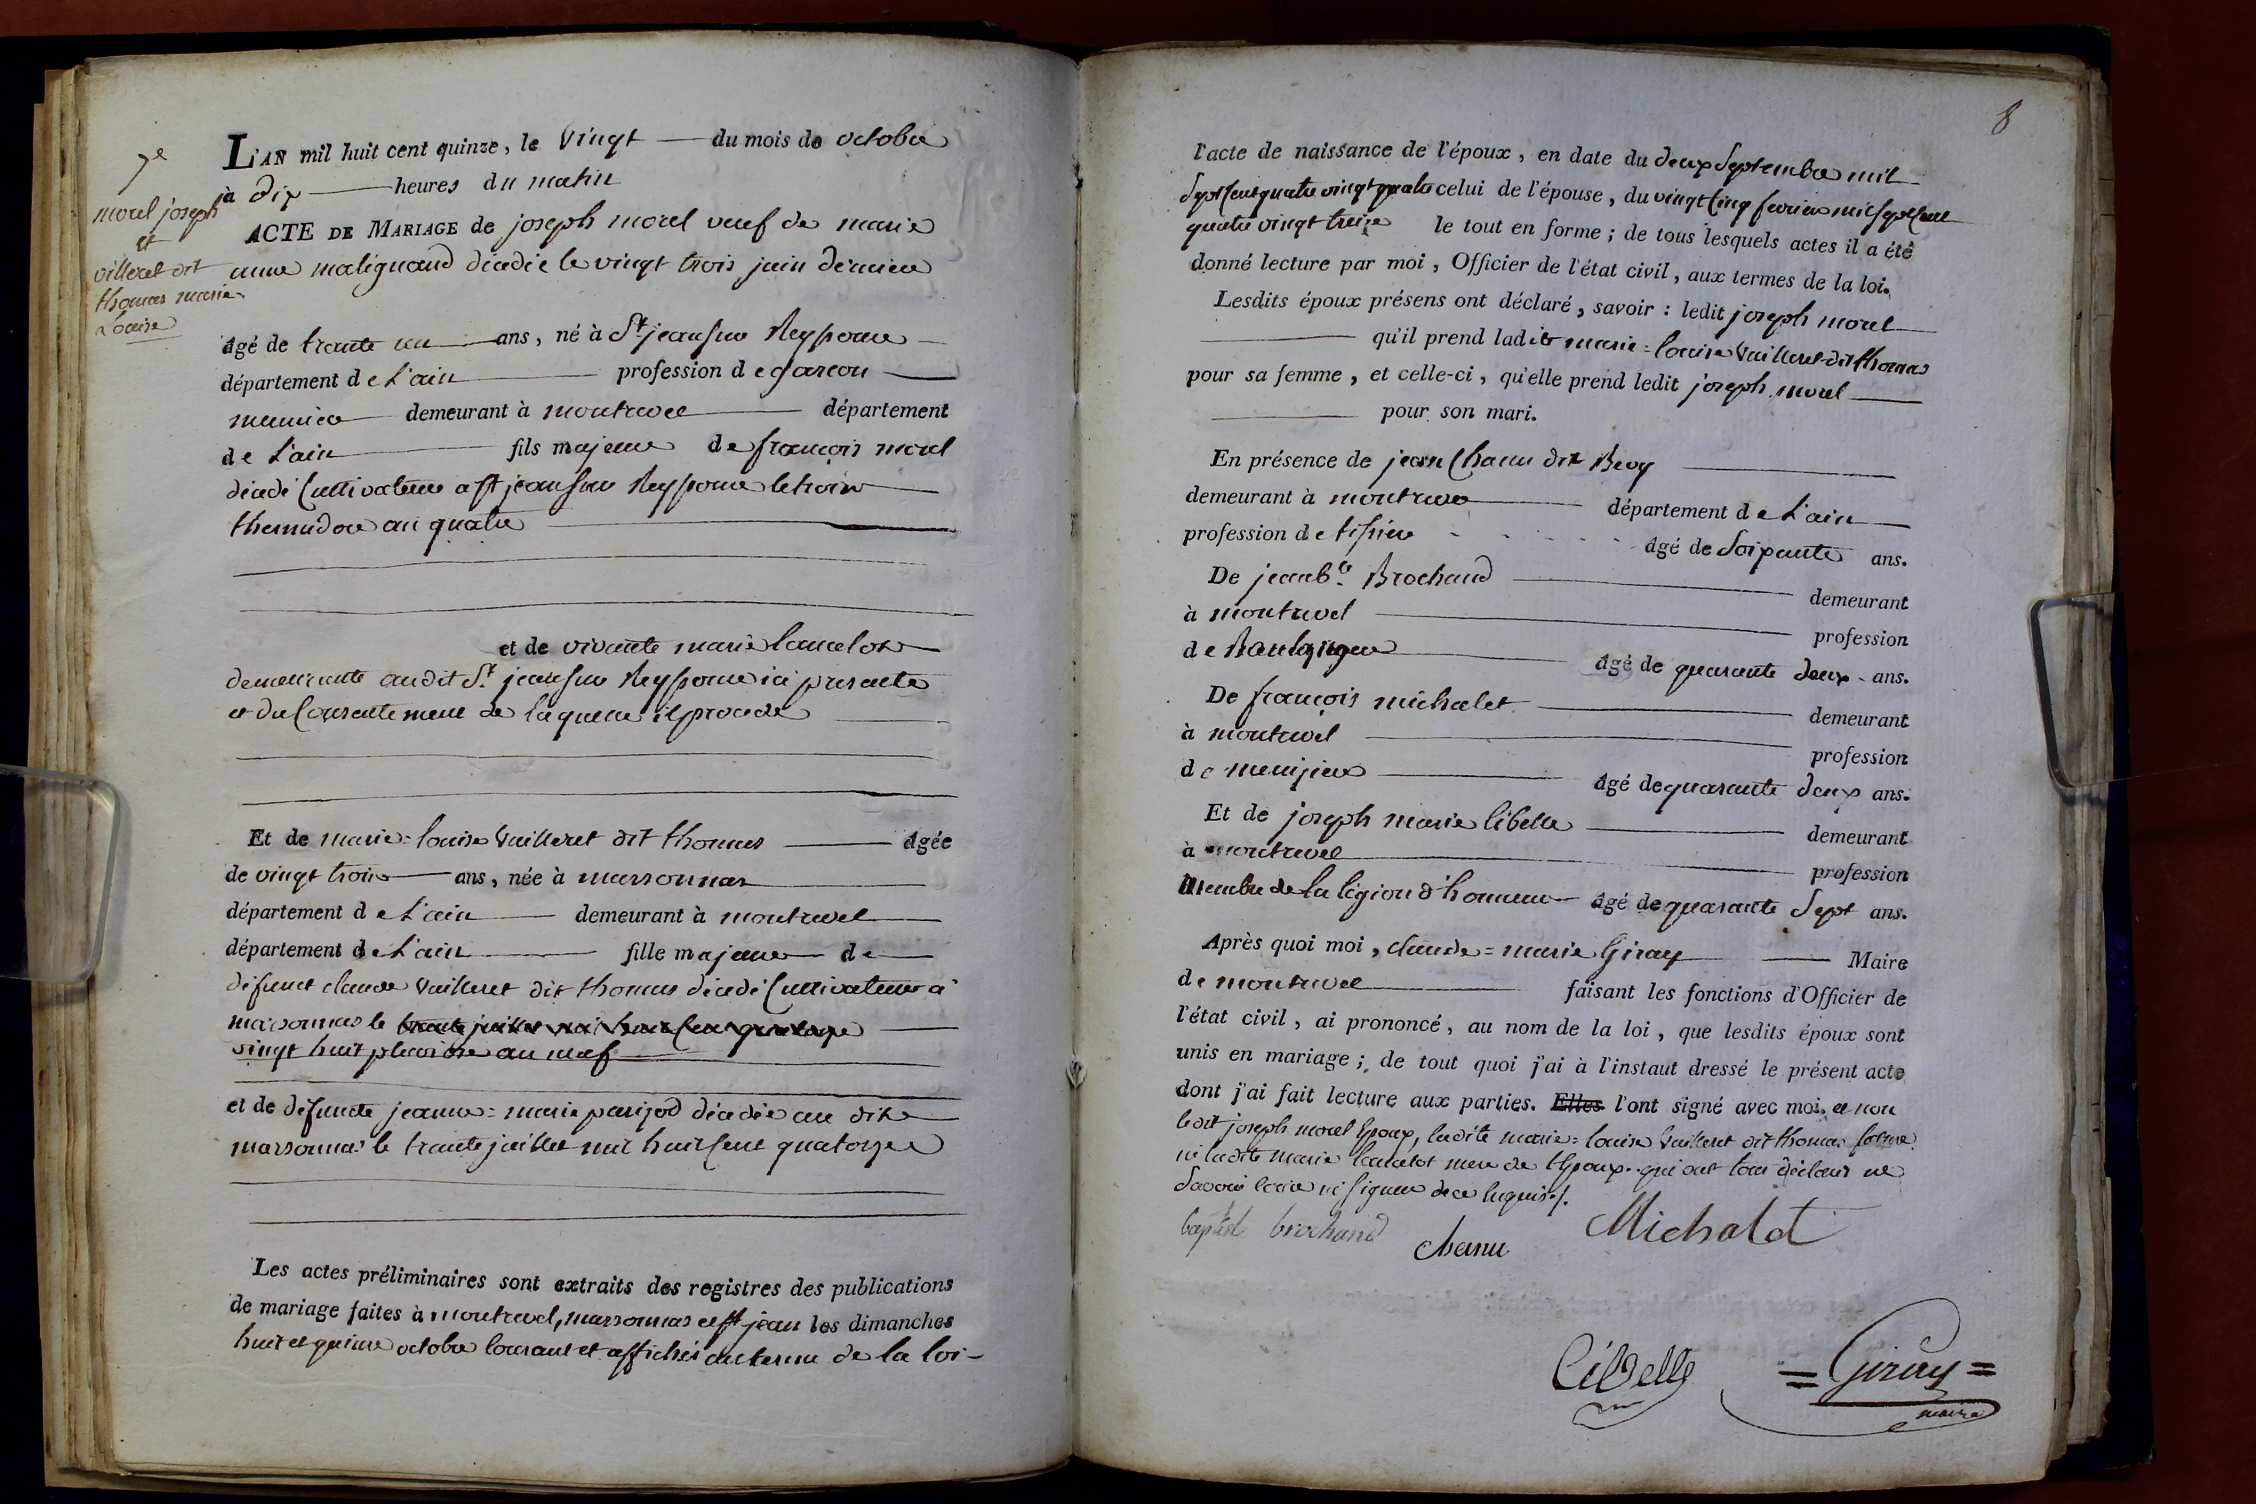 7e
morel joseph
et
villeret dit
thomas marie
Louise
L'AN mil huit cent quinze, le vingt du mois de octobre
à dix heures du matin
ACTE DE MARIAGE de joseph morel veuf de marie
anne malignand décédée le vingt trois juin dernier
âgé de trante un ans, né à St. jean sur Reyssouze
département de L'ain profession de garcon
meunier demeurant à montrevel département
de L'ain fils majeur de françois morel
décédé Cultivateur a St jean sur Reyssouze le trois
thermidore an quatre
et de vivante marie lancelot
demeurante audit St. jean sur Reyssouze ici presente
et du Consentement de laquelle il procede
Et de marie=louise Vuilleret dit thomas âgée
de vingt trois ans, née à marsonnas
département de L'ain demeurant à montrevel
département de L'ain fille majeure de
défunct claude Vuilleret dit thomas décédé Cultivateur à
marsonnas le trante juillet mil huit Cent quatorze
vingt huit pluviose an neuf
et de défuncte jeanne=marie parizod décédée au dit
marsonnas le trante juillet mil huit Cent quatorze
Les actes préliminaires sont extraits des registres des publications
de mariage faites à montrevel, marsonnas et St jean les dimanches
huit et quinze octobre Courant et affichés au terme de la loi
8
l'acte de naissance de l'époux, en date du deux Septembre mil
Sept Cent quatre vingt quatre celui de l'épouse, du vingt Cinq fevrier mil Sept Cent
quatre vingt treize le tout en forme; de tous lesquels actes il a été
donné lecture par moi, Officier de l'état civil, aux termes de la loi.
Lesdits époux présens ont déclaré, savoir: ledit joseph morel
qu'il prend ladite marie=louise Vuilleret dit thomas
pour sa femme, et celle-ci, qu'elle prend ledit joseph morel
pour son mari.
En présence de jean Chanu dit Bevy
demeurant à montrevel département de L'ain
profession de tissier âgé de Soixante ans.
De jean bte. Brochand demeurant
à montrevel profession
de Boulanger âgé de quarante deux ans.
De françois michalet demeurant
à montrevel profession
de menuisier âgé de quarante deux ans.
Et de joseph marie libelle demeurant
à montrevel profession
Membre de la légion d'honneur âgé de quarante Sept ans.
Après quoi moi, claude=marie Giray Maire
de montrevel faisant les fonctions d'Officier de
l'état civil, ai prononcé, au nom de la loi, que lesdits époux sont
unis en mariage; de tout quoi j'ai à l'instaut dressé le présent acte
dont j'ai fait lecture aux parties. Elles l'ont signé avec moi. et non
ledit joseph morel Epoux, ladite marie=louise Vuilleret dit thomas
ni ladite marie lancelot mere de l'Epoux qui ont tous déclarés ne
Savoir lire ni signer de ce requis./.
baptist brochand chanu Michalet
Libelle =Giray=
maire